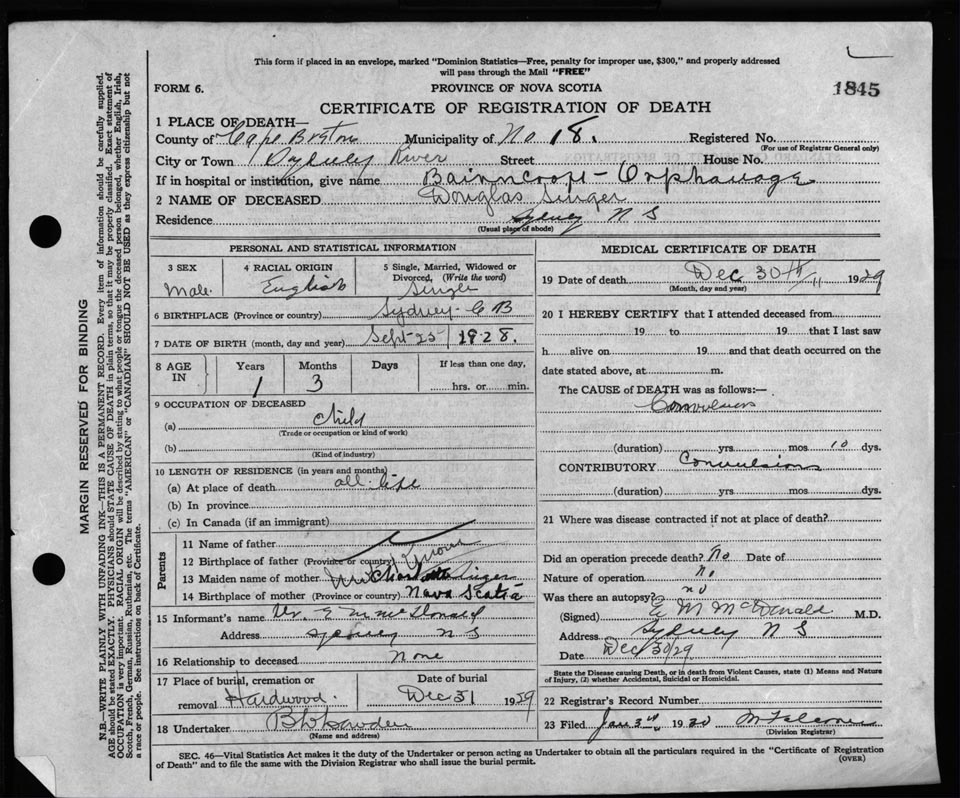 This form if placed in an envelope, marked "Dominion Statistics—Free, penalty for improper use, $300," and properly addressed
will pass through the Mail "FREE"
FORM 6.
PROVINCE OF NOVA SCOTIA
1845
CERTIFICATE OF REGISTRATION OF DEATH
1 PLACE OF DEATH—
County of Cape Breton Municipality of No 18. Registered No.
(For use of Registrar General only)
City or Town Sydney River Street House No.
If in hospital or institution, give name Bairncroft - Orphanage
2 NAME OF DECEASED Douglas Singer
Residence Sydney N S
(Usual place of abode)
PERSONAL AND STATISTICAL INFORMATION
3 SEX
Male
4 RACIAL ORIGIN
English
5 Single, Married, Widowed or
Divorced, (Write the word)
Single
6 BIRTHPLACE (Province or country) Sydney - C B
7 DATE OF BIRTH (month, day and year) Sept - 25 1928.
8 AGE
IN
Years
1
Months
3
Days
If less than one day,
hrs. or min.
9 OCCUPATION OF DECEASED
(a) Child
(Trade or occupation or kind of work)
(b)
(Kind of industry)
10 LENGTH OF RESIDENCE (in years and months)
(a) At place of death all life
(b) In province
(c) In Canada (if an immigrant)
Parents
11 Name of father
12 Birthplace of father (Province or country)
13 Maiden name of mother Singer
14 Birthplace of mother (Province or country) Nova Scotia
15 Informant's name Dr. E M McDonald
Address Sydney N S
16 Relationship to deceased None
17 Place of burial, cremation or
removal Hardwood
Date of burial
Dec 31 1929
18 Undertaker
(Name and address)
MEDICAL CERTIFICATE OF DEATH
19 Date of death Dec 30th 1929
(Month, day and year)
20 I HEREBY CERTIFY that I attended deceased from
19 to 19 that I last saw
h alive on 19 and that death occurred on the
date stated above, at m.
The CAUSE of DEATH was as follows:—
(duration) yrs. mos 10 dys.
CONTRIBUTORY Convulsions
(duration) yrs. mos. dys.
21 Where was disease contracted if not at place of death?
Did an operation precede death? No Date of
Nature of operation no
Was there an autopsy? no
(Signed) E M McDonald M.D.
Address Sydney N S
Date Dec 30/29
State the Disease causing Death, or in death from Violent Causes, state (1) Means and Nature
of Injury, (2) whether Accidental, Suicidal or Homicidal.
22 Registrar's Record Number
23 Filed Jan 3rd 1930
(Division Registrar)
SEC. 46—Vital Statistics Act makes it the duty of the Undertaker or person acting as Undertaker to obtain all the particulars required in the "Certificate of Registration
of Death" and to file the same with the Division Registrar who shall issue the burial permit.
(OVER)
MARGIN RESERVED FOR BINDING
N.B.—WRITE PLAINLY WITH UNFADING INK—THIS IS A PERMANENT RECORD. Every item of information should be carefully supplied.
AGE should be stated EXACTLY. PHYSICIANS should STATE CAUSE OF DEATH in plain terms, so that it may be properly classified. Exact statement of
OCCUPATION is very important. RACIAL ORIGIN will be described by stating to what people or tongue the deceased person belonged, whether English, Irish,
Scotch, French, German, Russian, Ruthenian, etc. The terms "AMERICAN" or "CANADIAN" SHOULD NOT BE USED as they express citizenship but not
a race or people. See instructions on back of Certificate.